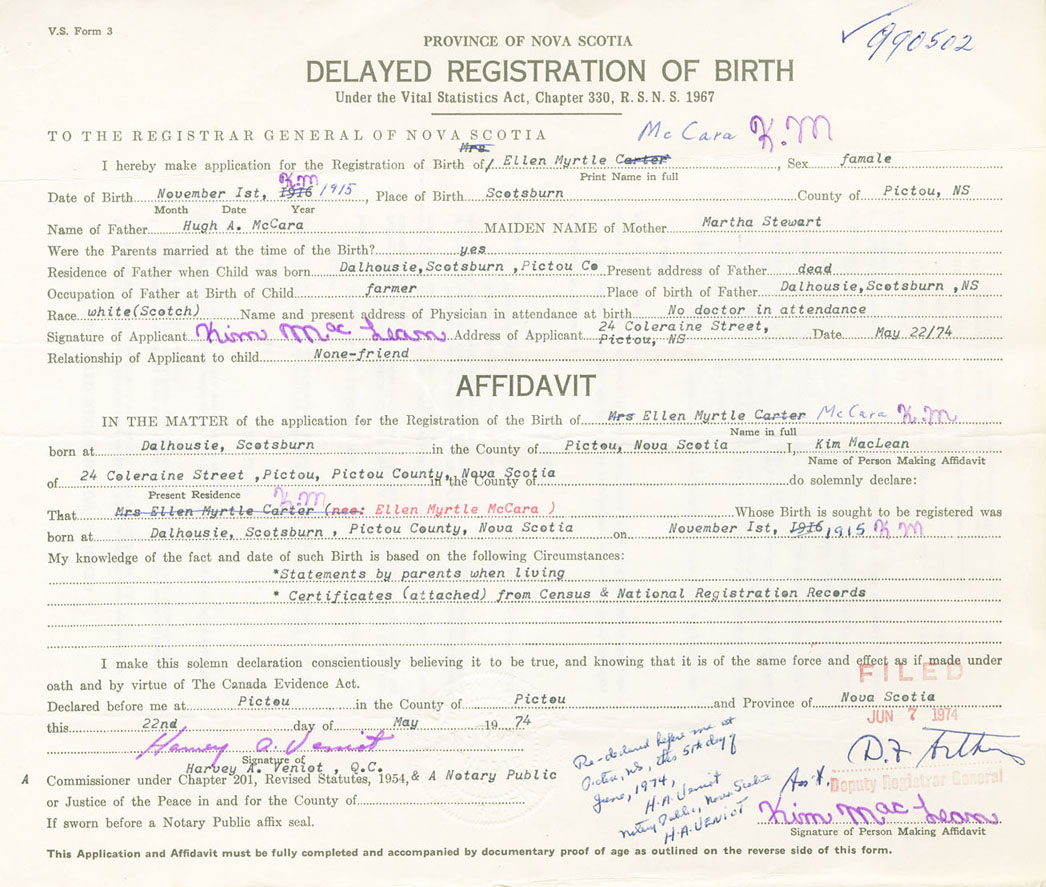 V.S. Form 3
✓990502
PROVINCE OF NOVA SCOTIA
DELAYED REGISTRATION OF BIRTH
Under the Vital Statistics Act, Chapter 330, R. S. N. S. 1967
TO THE REGISTRAR GENERAL OF NOVA SCOTIA Mrs. McCara K.M
I hereby make application for the Registration of Birth of/ Ellen Myrtle Carter, Sex famale
Print Name in full
K.M
Date of Birth November Ist, 1916 1915, Place of Birth Scotsburn County of Pictou, NS
Month Date Year
Name of Father Hugh A. McCara MAIDEN NAME of Mother Martha Stewart
Were the Parents married at the time of the Birth? yes
Residence of Father when Child was born Dalhousie,Scotsburn ,Pictou Co Present address of Father dead
Occupation of Father at Birth of Child farmer Place of birth of Father Dalhousie,Scotsburn ,NS
Race white(Scotch) Name and present address of Physician in attendance at birth No doctor in attendance
Signature of Applicant Kim MacLean Address of Applicant 24 Coleraine Street, Pictou, NS Date May 22/74
Relationship of Applicant to child None-friend
AFFIDAVIT
IN THE MATTER of the application for the Registration of the Birth of Mrs Ellen Myrtle Carter McCara K.M
Name in full
born at Dalhousie, Scotsburn in the County of Pictou, Nova Scotia I, Kim MacLean
Name of Person Making Affidavit
of 24 Coleraine Street ,Pictou, Pictou County, Nova Scotia in the County of do solemnly declare:
Present Residence K.M
That Mrs Ellen Myrtle Carter (nee: Ellen Myrtle McCara ) Whose Birth is sought to be registered was
born at Dalhousie, Scotsburn , Pictou County, Nova Scotia on November Ist, 1916, 1915 K M
My knowledge of the fact and date of such Birth is based on the following Circumstances:
*Statements by parents when living
* Certificates (attached) from Census & National Registration Records
I make this solemn declaration conscientiously believing it to be true, and knowing that it is of the same force and effect as if made under
oath and by virtue of The Canada Evidence Act.
FILED
Declared before me at Pictou in the County of Pictou and Province of Nova Scotia
this 22nd day of May 19 74
JUN 7 1974
Harvey A. Veniot
Signature of
Harvey A. Veniot , Q.C.
A Commissioner under Chapter 201, Revised Statutes, 1954, & A Notary Public
or Justice of the Peace in and for the County of
If sworn before a Notary Public affix seal.
Re-declared before me at
Pictou, NS, this 5th day of
June, 1974,
H.A. Veniot
Notary Public, Nova Scotia
H.A. VENIOT
Deputy Registrar General
Kim MacLean
Signature of Person Making Affidavit
This Application and Affidavit must be fully completed and accompanied by documentary proof of age as outlined on the reverse side of this form.